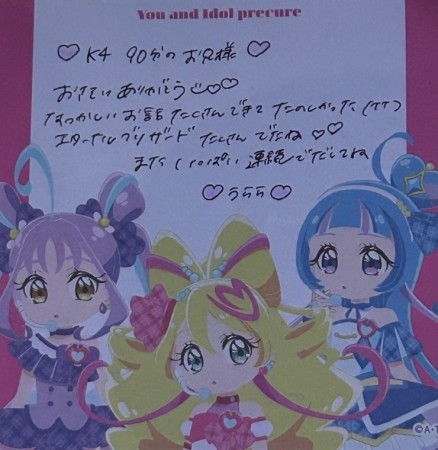 You and Idol precure
♡ K4 90分のお兄様 ♡
おてがみありがとう♡♡
なつかしいお話たくさんできてたのしかった(π π)
エターナルブリザードたくさんでたね♡♡
また いっぱい 連続でだしてね
♡ うらら ♡
©A・T